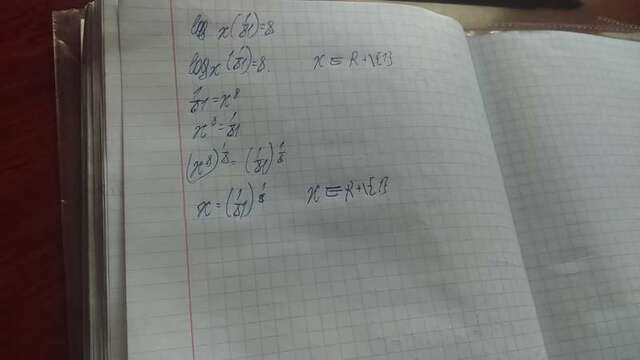 log x(1/81)=8
log x(1/81)=8. x ∈ R+\{1}
1/81=x⁸
x⁸=1/81
(x⁸)^1/8=(1/81)^1/8
x=(1/81)^1/8 x ∈ R+\{1}